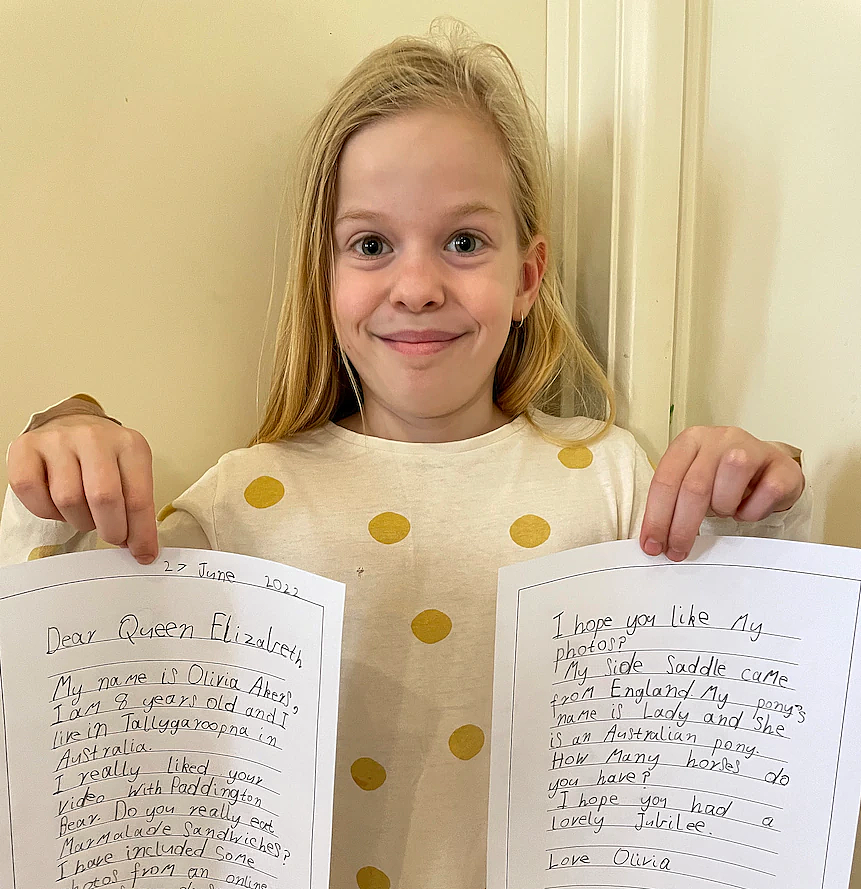 27 June 2022
Dear Queen Elizabeth
My name is Olivia Akers,
I am 8 years old and I
live in Tallygaroopna in
Australia.
I really liked your
video with Paddington
Bear. Do you really eat
Marmalade Sandwiches?
I have included some
photos from an online
I hope you like My
photos?
My side saddle came
from England My pony's
name is Lady and she
is an Australian pony.
How Many horses do
you have?
I hope you had a
lovely Jubilee.
Love Olivia